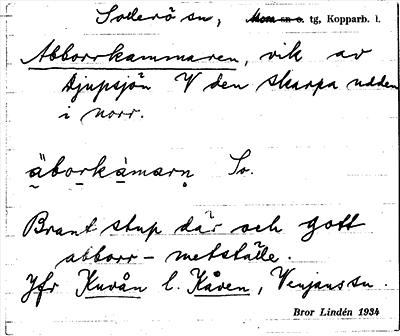 Sollerö sn, Mora sn o. tg, Kopparb. l.
Abborrkammaren, vik av
Djupsjön V den skarpa udden
i norr.
äborkamarn So.
Brant stup där och gott
abborr-metställe.
Jfr Kuvån l. Kåven, Venjans sn.
Bror Lindén 1934